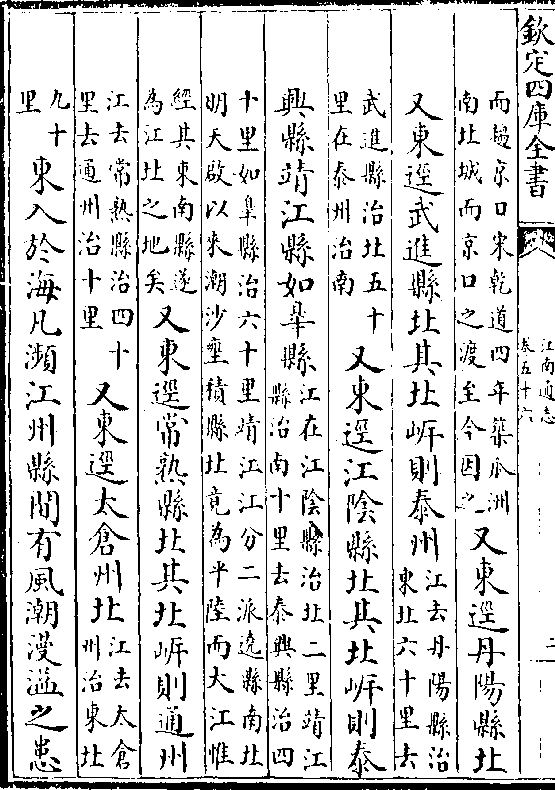 欽定四庫全書
江南通志
卷五十六
二
而趨京口宋乾道四年築瓜洲
南北城而京口之渡至今因之
又東逕丹陽縣北
又東逕武進縣北其北岼則泰州
江去丹陽縣治
東北六十里去
武進縣治北五十
里在泰州治南
又東逕江陰縣北其北岼則泰
興縣靖江縣如臯縣
江在江陰縣治北二里靖江
縣治南十里去泰興縣治四
十里如臯縣治六十里靖江江分二派遶縣南北
明天啟以來潮沙壅積縣北竟為平陸而大江惟
經其東南縣遂
為江北之地矣
又東逕常熟縣北其北岼則通州
江去常熟縣治四十
里去通州治十里
又東逕太倉州北
江去太倉
州治東北
九十
里
東入於海凡瀕江州縣間有風潮漫溢之患